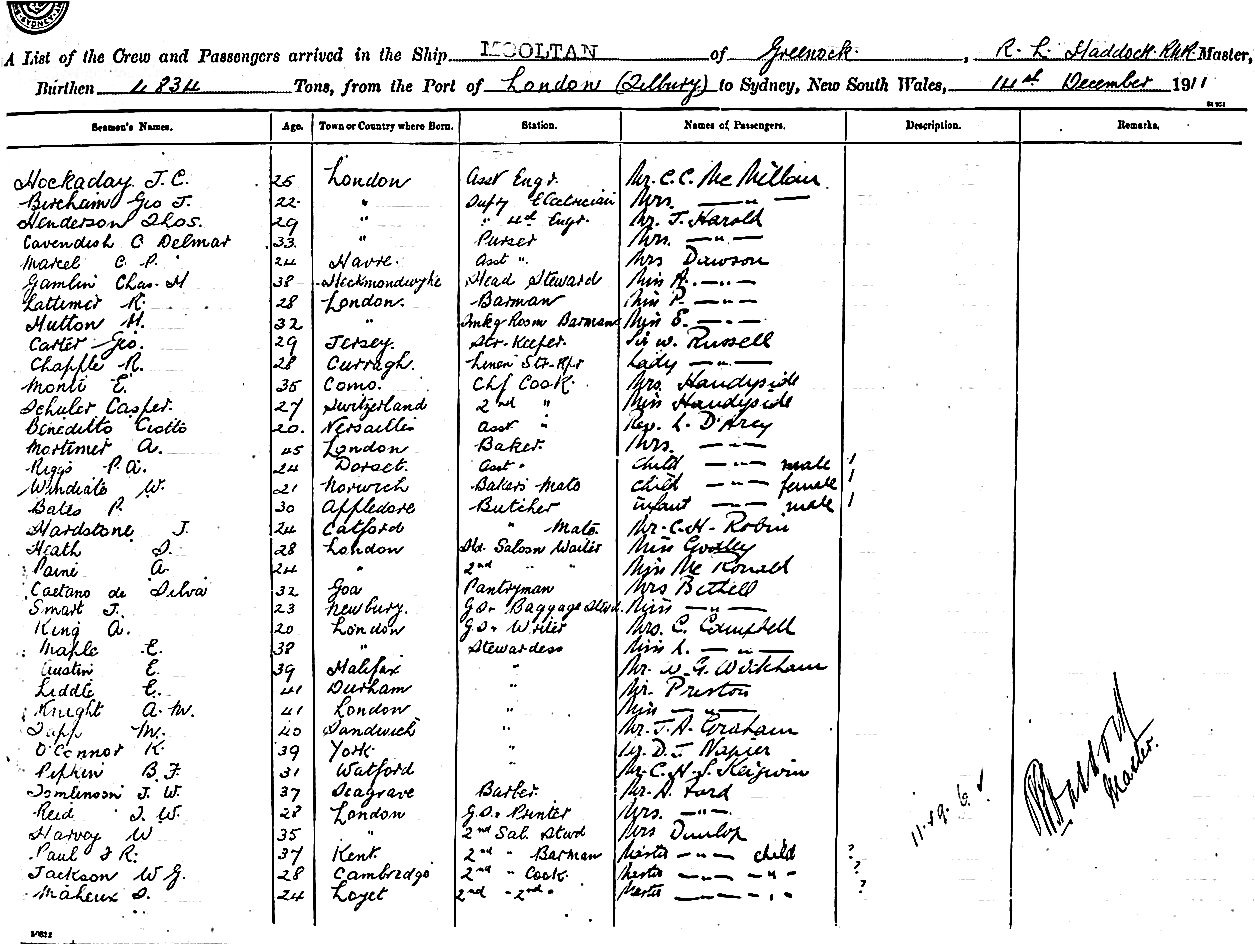 SYDNEY
A List of the Crew and Passengers arrived in the Ship MOOLTAN of Greenock, R. L. Haddock RNR Master,
Burthen 4834 Tons, from the Port of London (Tilbury) to Sydney, New South Wales, 14th December 1911
Seamen's Names. Age. Town or Country where Born. Station. Names of Passengers. Description. Remarks.
Hockaday J. C. 25 London Asst Engr. Mr. C. C. McMillan
Bircham Geo J. 22 " Dupty Electrician Mrs. — " —
Henderson Thos. 29 " " 4th Engr. Mr. J. Harold
Cavendish C Delmar 33 " Purser Mrs. — " —
Marcel C. P. 24 Havre. Asst ". Mrs Dawson
Gamlin Chas. H 38 Heckmondwyke Head Steward Miss A. — " —
Lattimer R. 28 London. Barman Miss P. — " —
Hutton H. 32 " Smkg Room Barman Miss E. — " —
Carter Geo. 29 Jersey. Str. Keeper Sir W. Russell
Chapple R. 28 Curragh. Linen Str. Kpr Lady — " —
Monti E. 35 Como. Chf Cook. Mrs. Handyside
Schuler Casper. 27 Switzerland 2nd " Miss Handyside
Beneditto Ciotto 20. Versailles asst " Rev. L. D'Arcy
Mortimer A. 45 London Baker. Mrs. — " —
Riggs P. A. 24 Dorset. Asst " Child — " — male 1
Windiate W. 21 Norwich Bakers Mate child — " — female 1
Bates P. 30 Appledore Butcher infant — " — male 1
Hardstone J. 24 Catford " Mate. Mr. C. H. Robin
Heath 28 London Hd. Saloon Waiter Miss
Paine A. 24 " 2nd " " Miss McRonald
Caetano de Silva 32 Goa Pantryman Mrs Bethell
Smart J. 23 Newbury. G.S. Baggage Stwd. Miss — " —
King A. 20 London G.S. Writer Mrs. C. Campbell
Maple E. 38 " Stewardess Miss L. — " —
Austin E. 39 Halifax " Mr. W. G.
Liddle E. 41 Durham " Mr. Preston
Knight A. M. 41 London " Miss — " —
Tapp M. 40 Sandwich " Mr. J. A. Graham
O'Connor K. 39 York. " D. J. Napier
Pipkin B. F. 31 Watford " Mr. C. H. S. Keigwin
Tomlinson J. W. 37 Seagrave Barber Mr. A. Ford
Reid J. W. 28 London G.S. Printer Mrs. — " —
Harvey W 35 " 2nd Sal. Stwd Mrs Dunlop
Paul J R. 37 Kent. 2nd " Barman Master — " — child ?
Jackson W G. 28 Cambridge 2nd " Cook. Master — " — " ?
Maheux 24 2nd " 2nd " Master — " — " ?
11.59. 6.
Master.